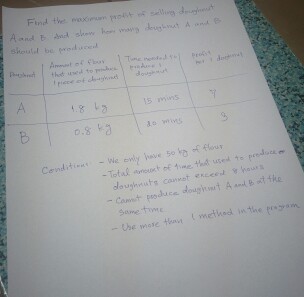 Find the maximum profit of selling doughnut
A and B. And show how many doughnut A and B
should be produced
Product Amount of flour that used to produce 1 piece are doughnut Time needed to produce 1 doughnut Profit per 1 doughnut
A 1.8 kg 15 mins
B 0.8 kg 20 mins 3
Condition: - We only have 50 kg of flour
- Total amount of time that used to produce
doughnuts cannot exceed 8 hours
- Cannot produce doughnut A and B at the
same time
- Use more than 1 method in the program